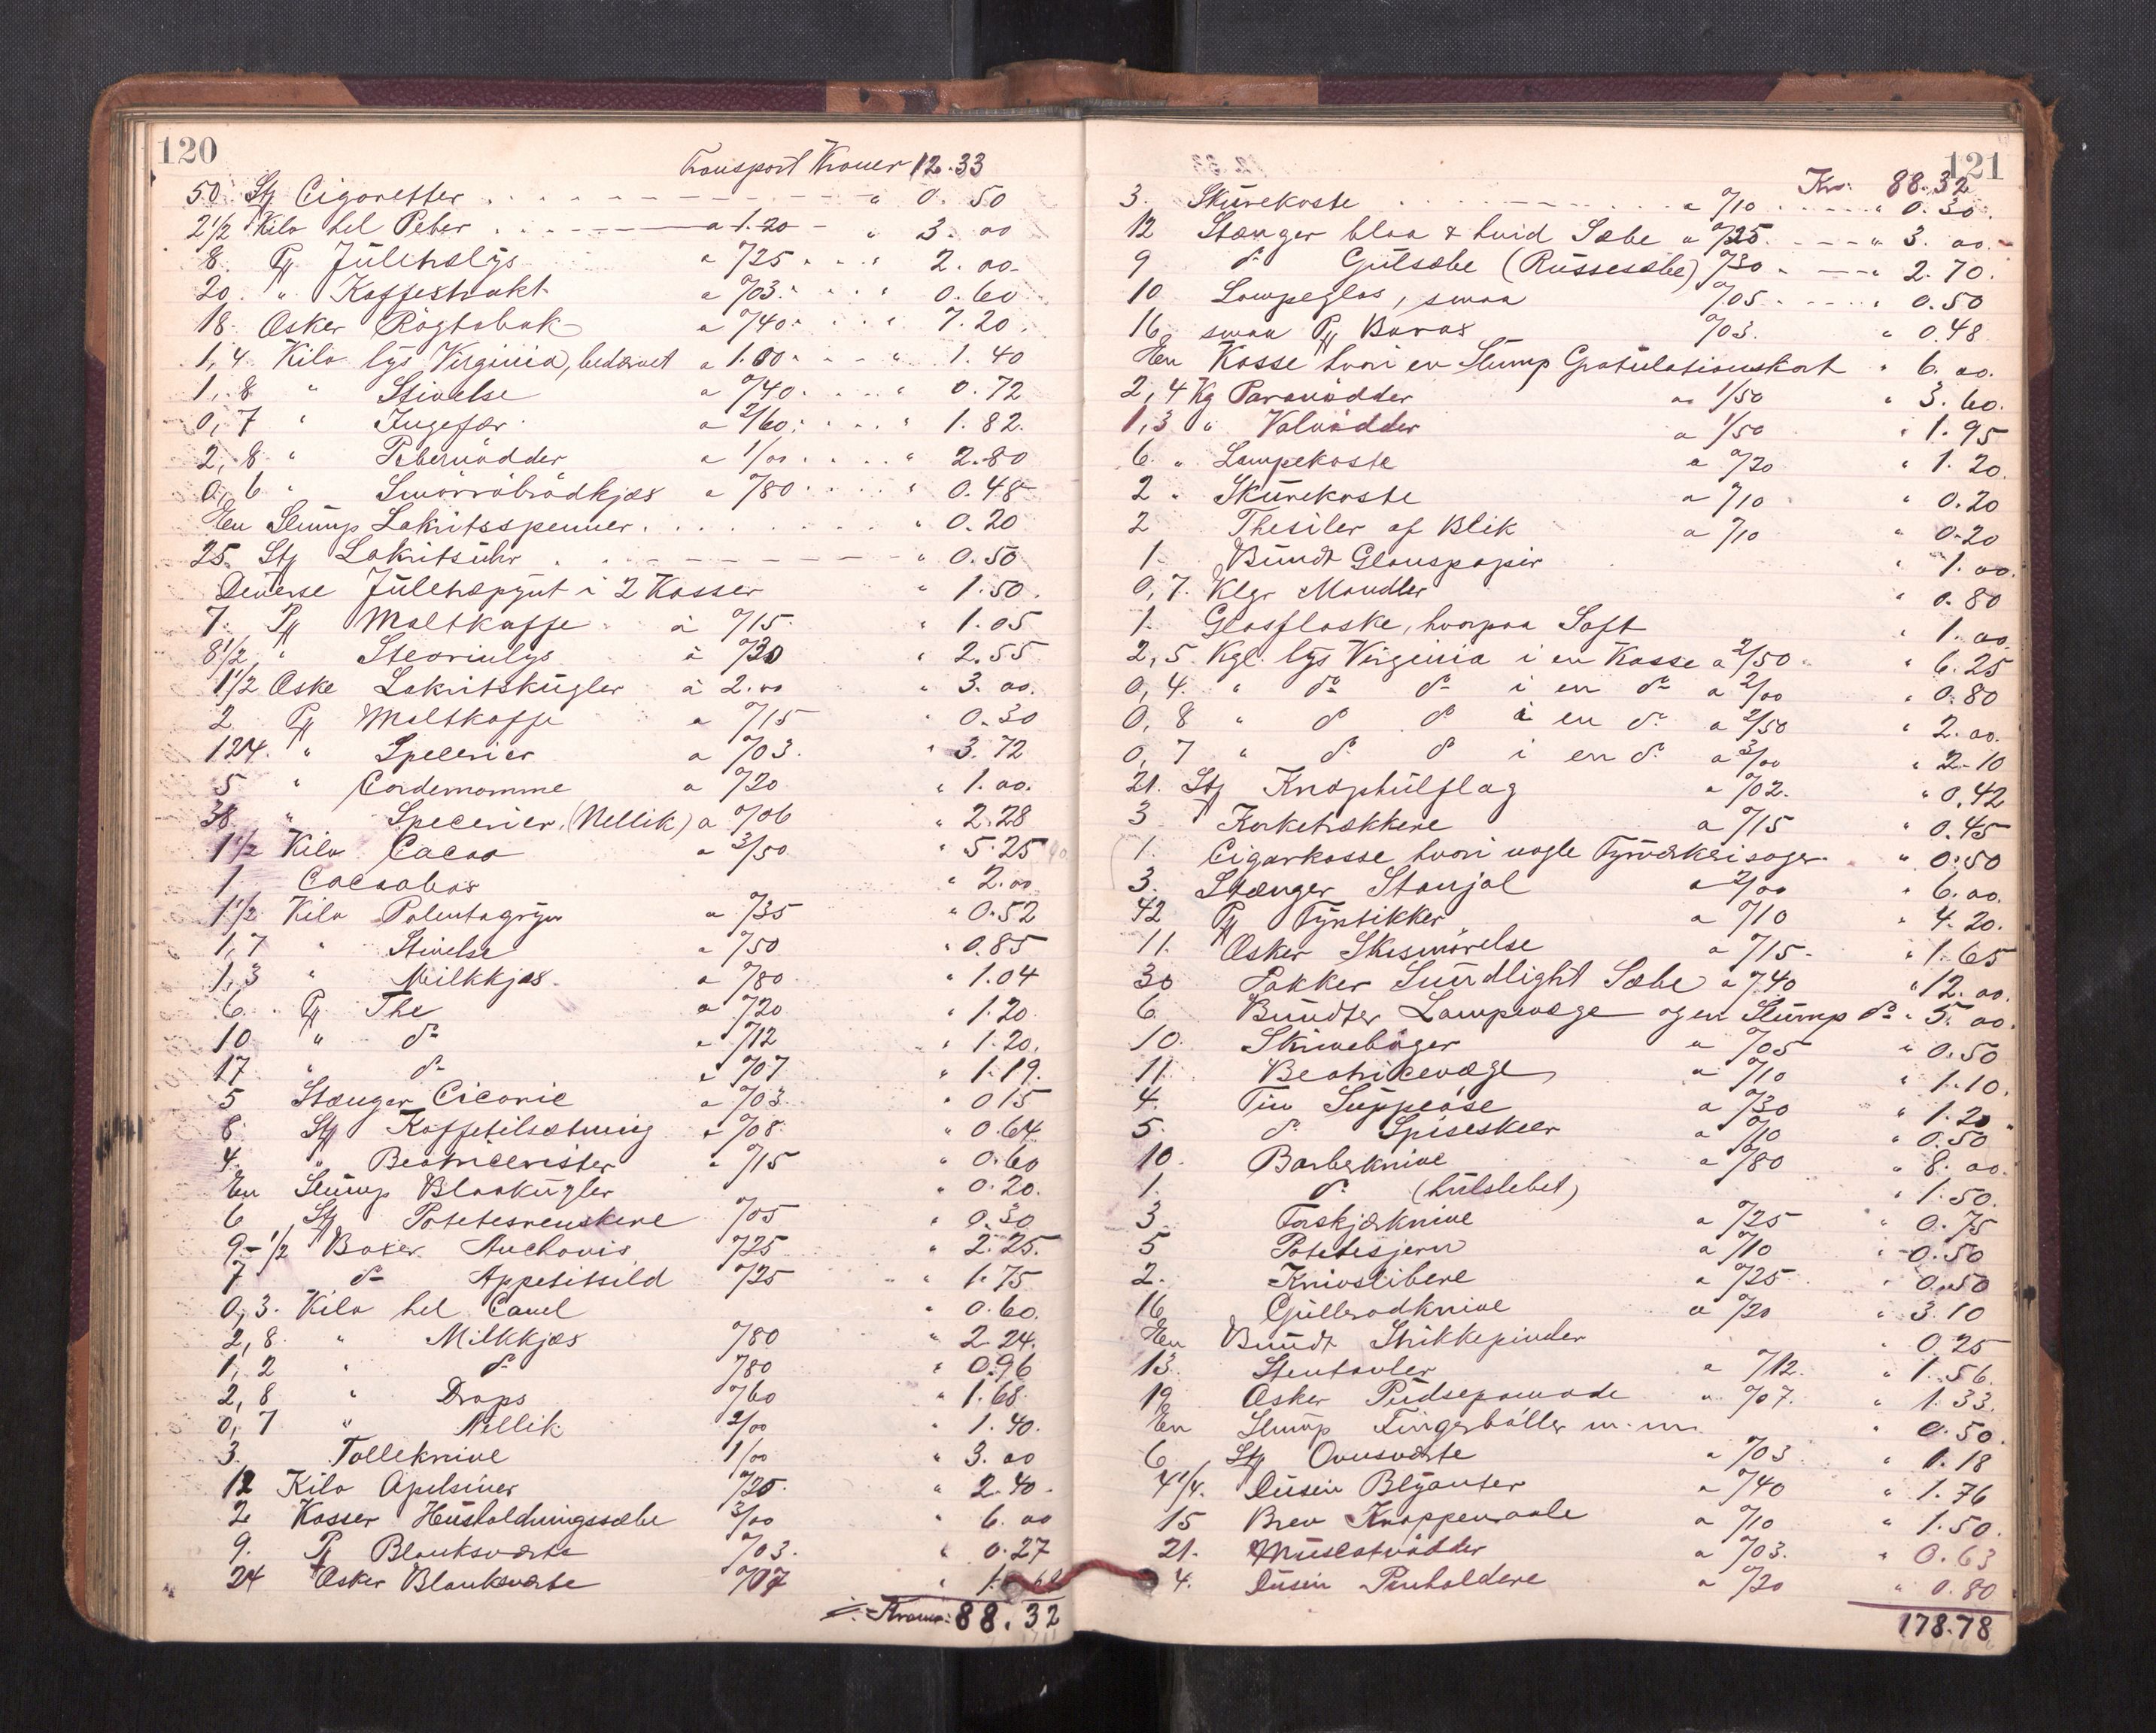 120
Transport Kroner 12.33
50 Stg Cigaretter " 0.50
2 1/2 Kilo hel Peber a 1.20 " 3.00
8 Pg Juletrælys a 0/25 " 2.00
20 " Kaffestrakt a 0/03 " 0.60
18 Æsker Røgtobak a 0/40 " 7.20
1,4 Kilo lys Virginia, bedærvet a 1.00 " 1.40
1,8 " Stivelse a 0/40 " 0.72
0,7 " Ingefær a 2/60 " 1.82
2,8 " Pebernødder a 1/00 " 2.80
0,6 " Smørrebrødkjæs a 0/80 " 0.48
En Slump Lakritsspenner " 0.20
25 Stg Lakritsuhr " 0.50
Diverse Juletræpynt i 2 Kasser " 1.50
7 Pg Maltkaffe à 0/15 " 1.05
8 1/2 " Stearinlys à 0/30 " 2.55
1 1/2 Æske Lakritskugler à 2.00 " 3.00
2 Pg Maltkaffe a 0/15 " 0.30
124 " Specerier a 0/03 " 3.72
5 " Cardemomme a 0/20 " 1.00
38 " Specerier (Nellik) a 0/06 " 2.28
1 1/2 Kilo Cacao a 3/50 " 5.25
1 Cacaobas " 2.00
1 1/2 Kilo Polentagryn a 0/35 " 0.52
1,7 " Stivelse a 0/50 " 0.85
1,3 " Milkkjæs a 0/80 " 1.04
6 Pg The a 0/20 " 1.20
10 " do a 0/12 " 1.20
17 " do a 0/07 " 1.19
5 Stænger Cicorie a 0/03 " 0 15
8 Stg Kaffetilsætning a 0/08 " 0.64
4 " Beatricerister " 0/15 " 0.60
En Slump Blaakugler " 0.20
6 Stg Potetesrenskere 0/05 " 0.30
9-1/2 Boxer Anchovis 0/25 " 2.25
7 do Appetitsild 0/25 " 1.75
0,3 Kilo hel Canel " 0.60
2,8 " Milkkjæs 0/80 " 2.24
1,2 " do 0/80 " 0.96
2,8 " Drops 0/60 " 1.68
0,7 " Nellik 2/00 " 1.40
3 Tolleknive 1/00 " 3.00
12 Kilo Apelsiner 0/20 " 2.40
2 Kasser Husholdningssæbe 3/00 " 6.00
9 Pg Blanksværte 0/03 " 0.27
24 Æsker Blanksværte 0/07 " 1.68
Kroner: 88.32
121
Kr. 88.32
3 Skurekoste a 0/10 " 0.30
12 Stænger blaa & hvid Sæbe a 0/25 " 3.00
9 do Gulsæbe (Russesæbe) 0/30 " 2.70
10 Lampeglas, smaa 0/05 " 0.50
16 smaa Pg Borax 0/03 " 0.48
En Kasse hvori en Slump Gratulationskort " 6.00
2,4 Kg Paranødder a 1/50 " 3.60
1,3 " Valnødder a 1/50 " 1.95
6 " Lampekoste a 0/20 " 1.20
2 " Skurekoste a 0/10 " 0.20
2 Thesiler af Blik a 0/10 " 0.20
1 Bundt Glanspapir " 1.00
0,7 Klgr Mandler " 0.80
1 Glasflaske, hvorpaa Saft " 1.00
2,5 Kgl. lys Virginia i en Kasse a 2/50 " 6.25
0,4 " do do i en do a 2/00 " 0.80
0,8 " do do i en do a 2/50 " 2.00
0,7 " do do i en do a 3/00 " 2.10
21 Stg Knaphulflag a 0/02 " 0,42
3 Korketrækkere a 0/15 " 0.45
1 Cigarkasse hvori nogle Fyrværkerisager " 0.50
3 Stænger Stanjol a 2/00 " 6.00
42 Pg Fyrstikker a 0/10 " 4.20
11 Æsker Skismørelse a 0/15 " 1.65
30 Pakker Sundlight Sæbe a 0/40 " 12.00
6 Bundter Lampevæge og en Slump do " 5.00
10 Skrivebøger a 0/05 " 0.50
11 Beatricevæge a 0/10 " 1.10
4 Tin Suppeøse a 0/30 " 1.20
5 do Spiseskeer a 0/10 " 0.50
10 Barberknive a 0/80 " 8.00
1 do (hulslebet) " 1.50
3 Forskjærknive a 0/25 " 0.75
5 Potetesjern a 0/10 " 0.50
2 Knivslibere a 0/25 " 0.50
16 Gullerodknive a 0/20 " 3.10
En Bundt Strikkepinder " 0.25
13 Stentavler a 0/12 " 1.56
19 Æsker Pudsepomade " 0/07 " 1.33
En Slump Fingerbøller m.m. " 0.50
6 Stg Ovnsværte a 0/03 " 0.18
4 1/4 Dusin Blyanter a 0/40 " 1.76
15 Brev Knappenaale a 0/10 " 1.50
21 Muscatnødder a 0/03 " 0.63
4 Dusin Penholdere a 0/20 " 0.80
178.78